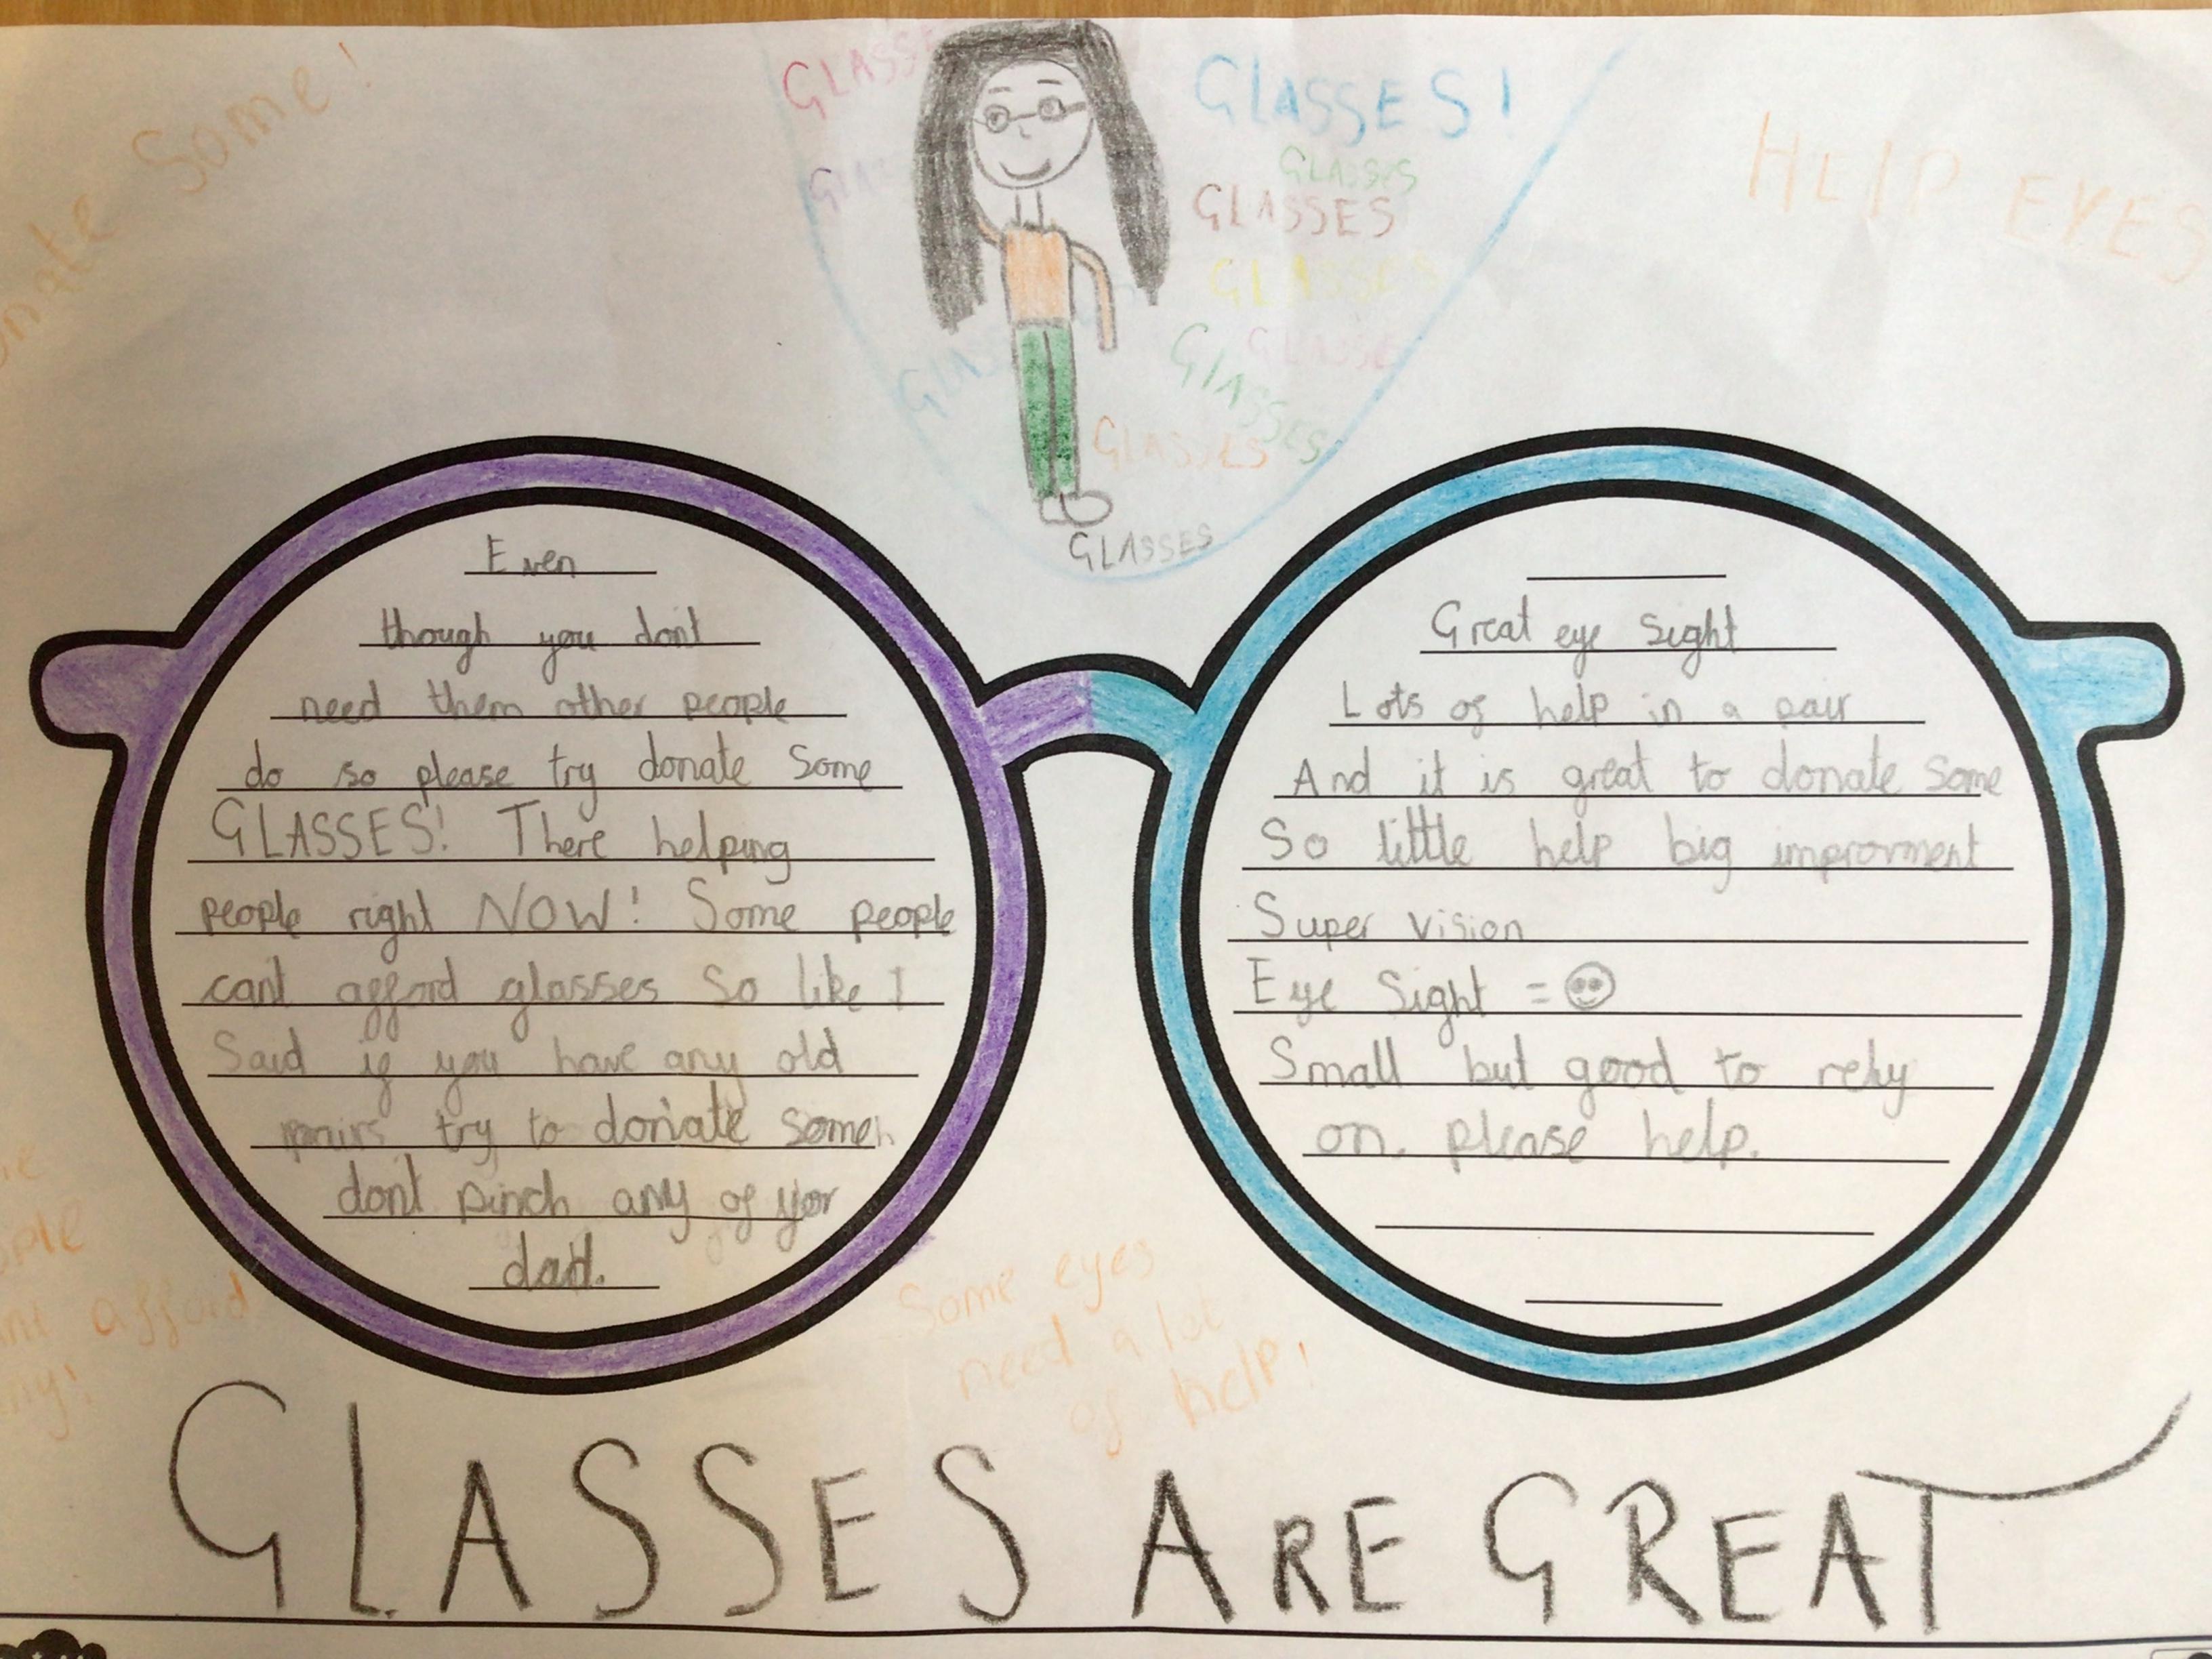 Some!
HElP EYES
GLASSE
GLASSES!
GLASSES
GLASSES
GLASSES
GLASSE
GLASSES
GLASSES
GLASSES
Even
though you dont
need them other people
do so please try donate Some
GLASSES! There helping
people right NOW! Some people
cant afford glasses So like I
Said if you have any old
pairs try to donate some
dont pinch any of yor
dad.
Great eye sight
Lots of help in a pair
And it is great to donate Some
So little help big improvment
Super vision
Eye Sight =
Small but good to rely
on. please help.
afford
Some eyes
need a lot
of help!
GLASSES ARE GREAT